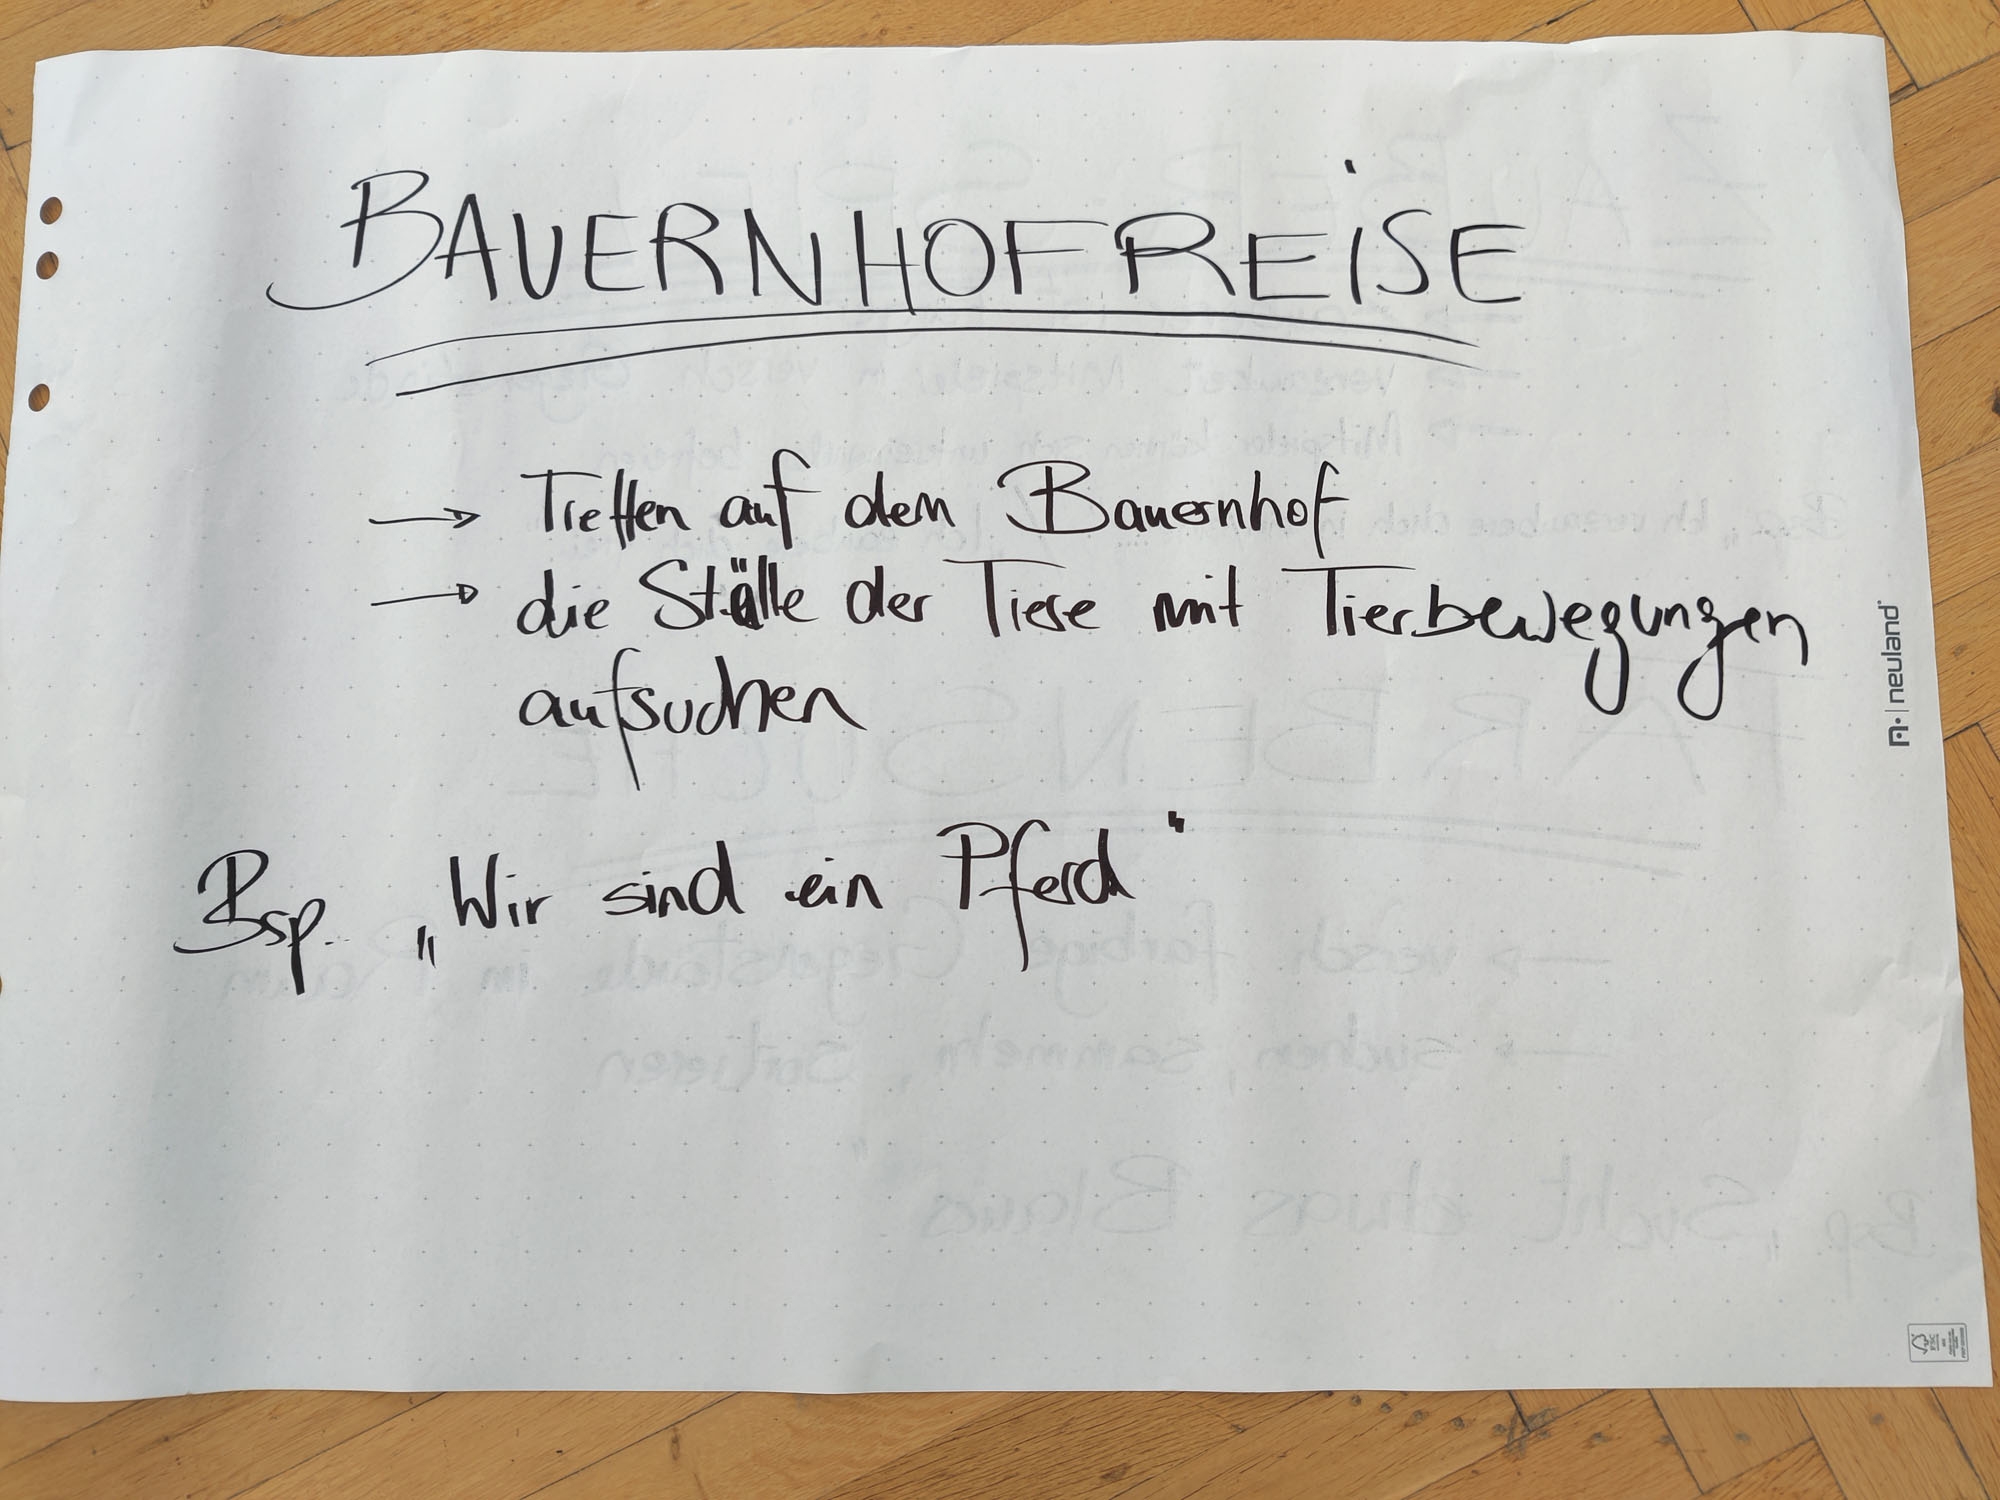 BAUERNHOFREISE
→ Treffen auf dem Bauernhof
→ die Ställe der Tiere mit Tierbewegungen
aufsuchen
Bsp. „Wir sind ein Pferd"
neuland